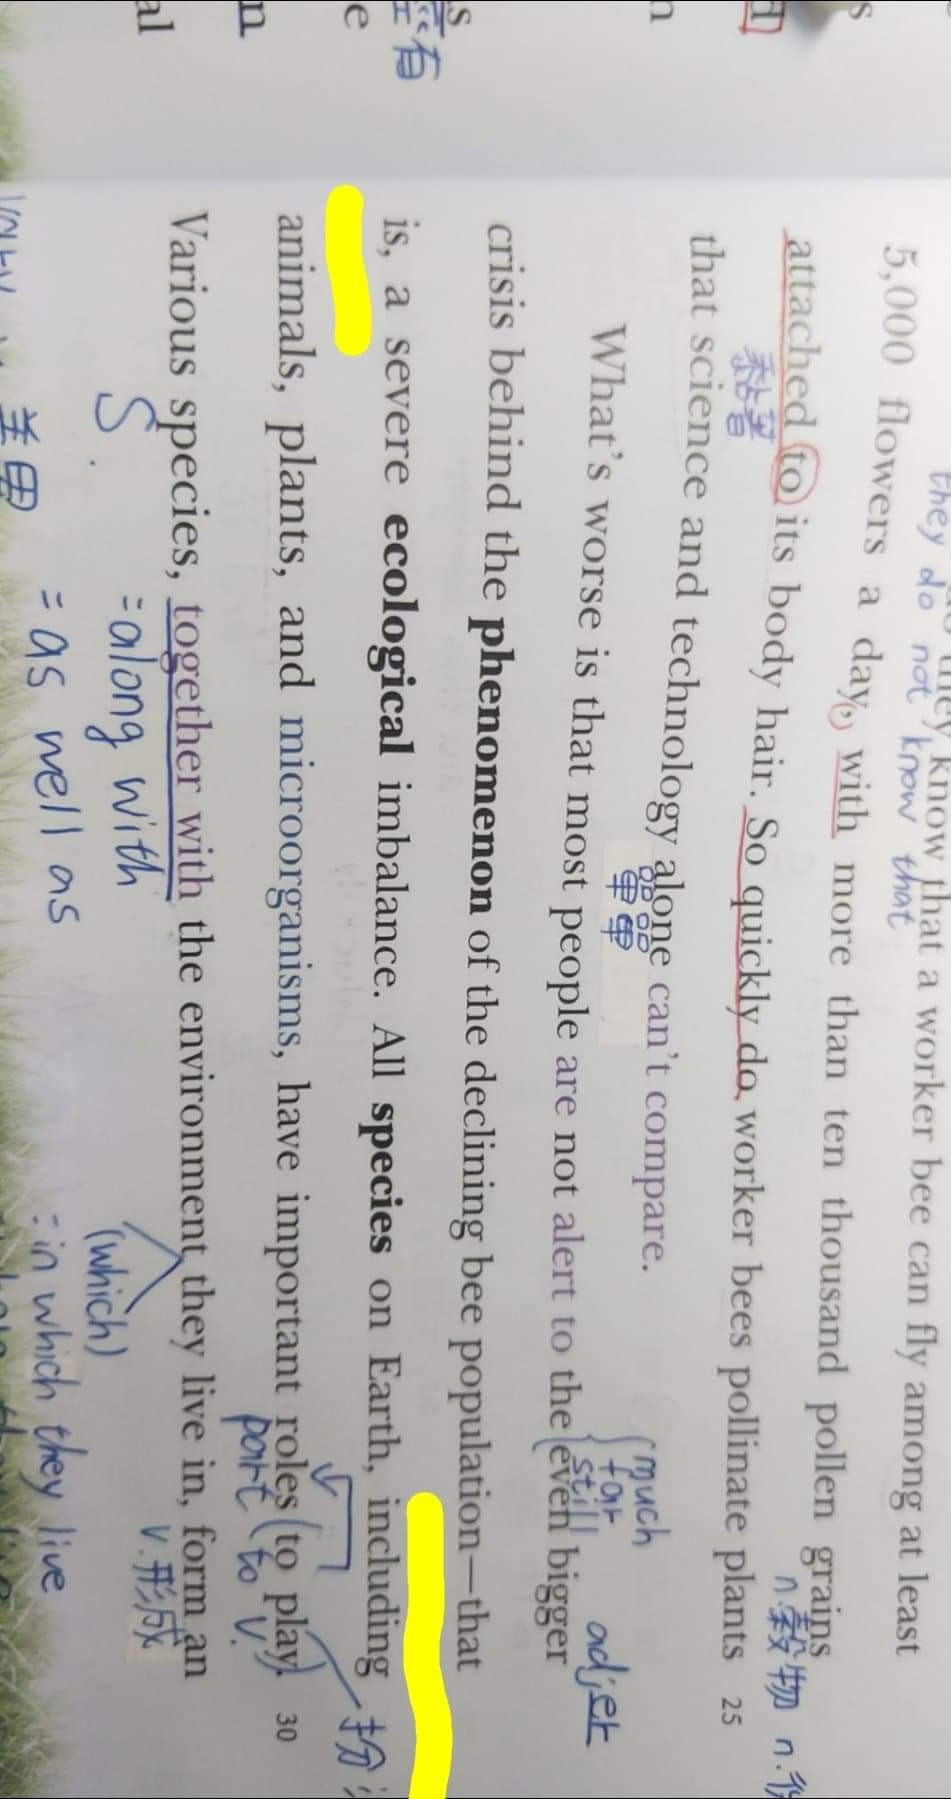 they do not know that
they know that a worker bee can fly among at least
5,000 flowers a day, with more than ten thousand pollen grains
n.穀物
attached to its body hair. So quickly do worker bees pollinate plants 25
黏著
that science and technology alone can't compare.
單單
much
far
still
adj.er
What's worse is that most people are not alert to the even bigger
crisis behind the phenomenon of the declining bee population—that
is, a severe ecological imbalance. All species on Earth, including
animals, plants, and microorganisms, have important roles (to play). 30
part (to V.
Various species, together with the environment they live in, form an
S
=along with
(which)
v.形成
=as well as
=in which they live